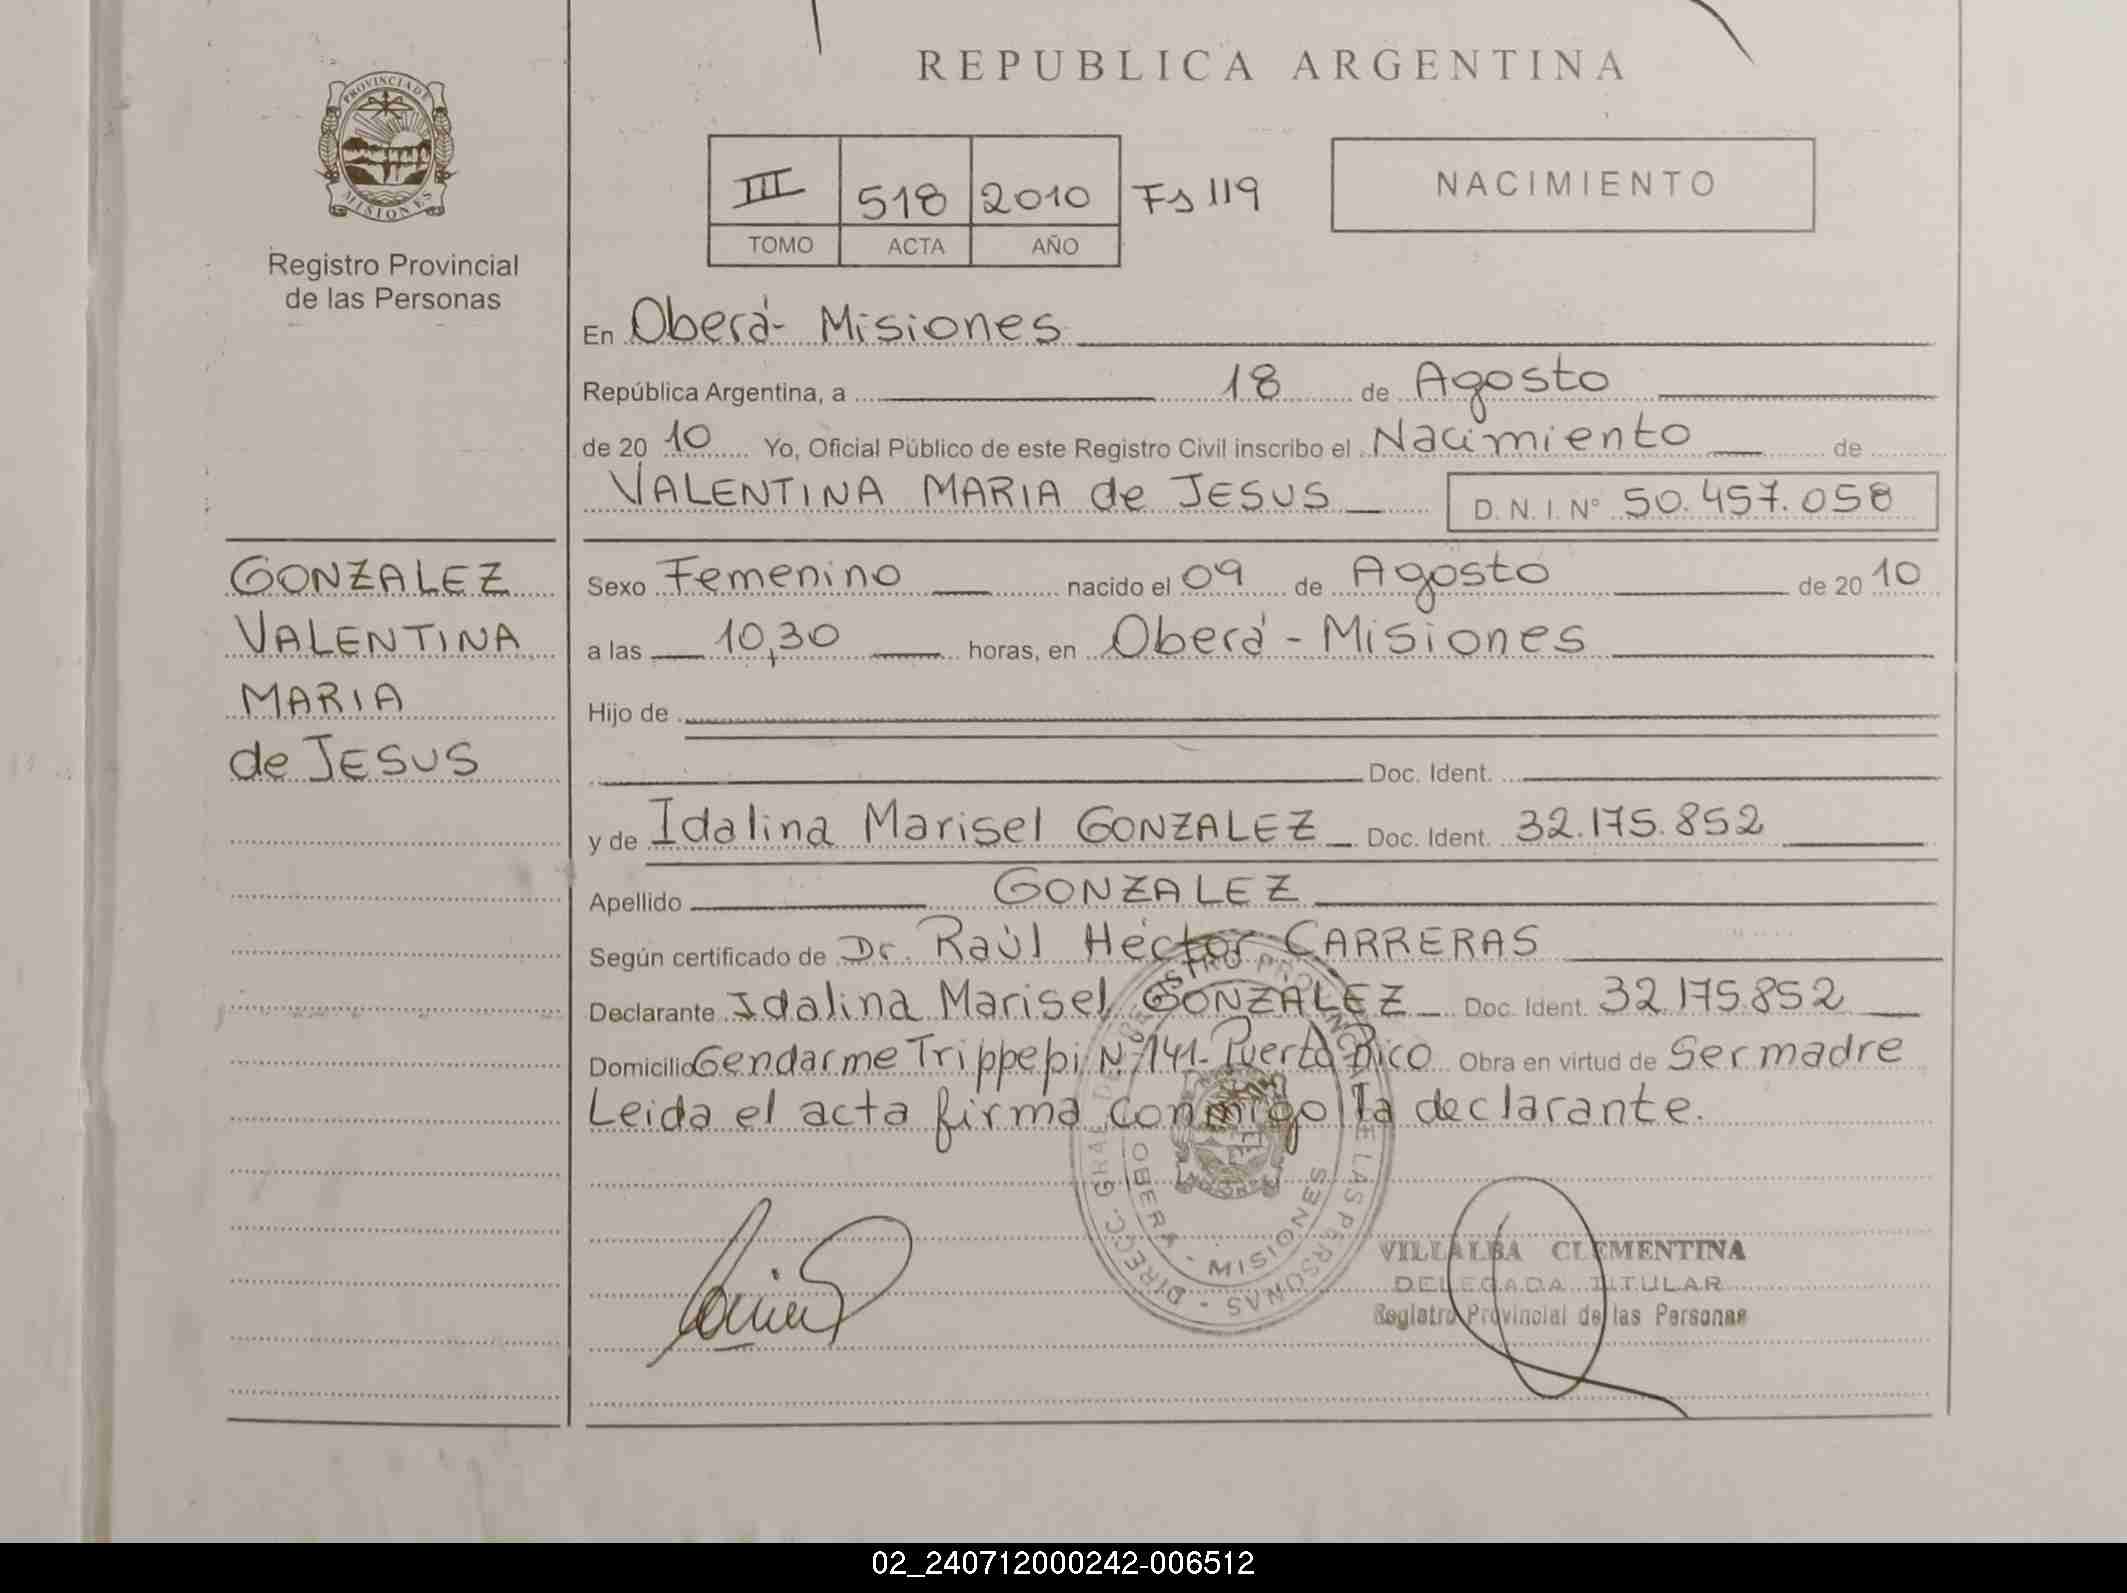 REPUBLICA ARGENTINA
PROVINCIA DE
MISIONES
Registro Provincial
de las Personas
III 518 2010 Fs 119
TOMO ACTA AÑO
NACIMIENTO
En Oberá - Misiones
República Argentina, a 18 de Agosto
de 20 10 Yo, Oficial Público de este Registro Civil inscribo el Nacimiento de
VALENTINA MARIA de JESUS D. N. I. Nº 50.457.058
GONZALEZ
VALENTINA
MARIA
de JESUS
Sexo Femenino nacido el 09 de Agosto de 20 10
a las 10,30 horas, en Oberá - Misiones
Hijo de
Doc. Ident.
y de Idalina Marisel GONZALEZ Doc. Ident. 32.175.852
Apellido GONZALEZ
Según certificado de Dr. Raúl Héctor CARRERAS
Declarante Idalina Marisel GONZALEZ Doc. Ident. 32.175.852
Domicilio Gendarme Trippepi Nº 141 - Puerto Rico Obra en virtud de Ser madre
Leida el acta firma conmigo la declarante.
DIRECC. GRAL DE REGISTRO PROVINCIAL DE LAS PERSONAS -
OBERA - MISIONES
VILLALBA CLEMENTINA
DELEGADA TITULAR
Registro Provincial de las Personas
02_240712000242-006512